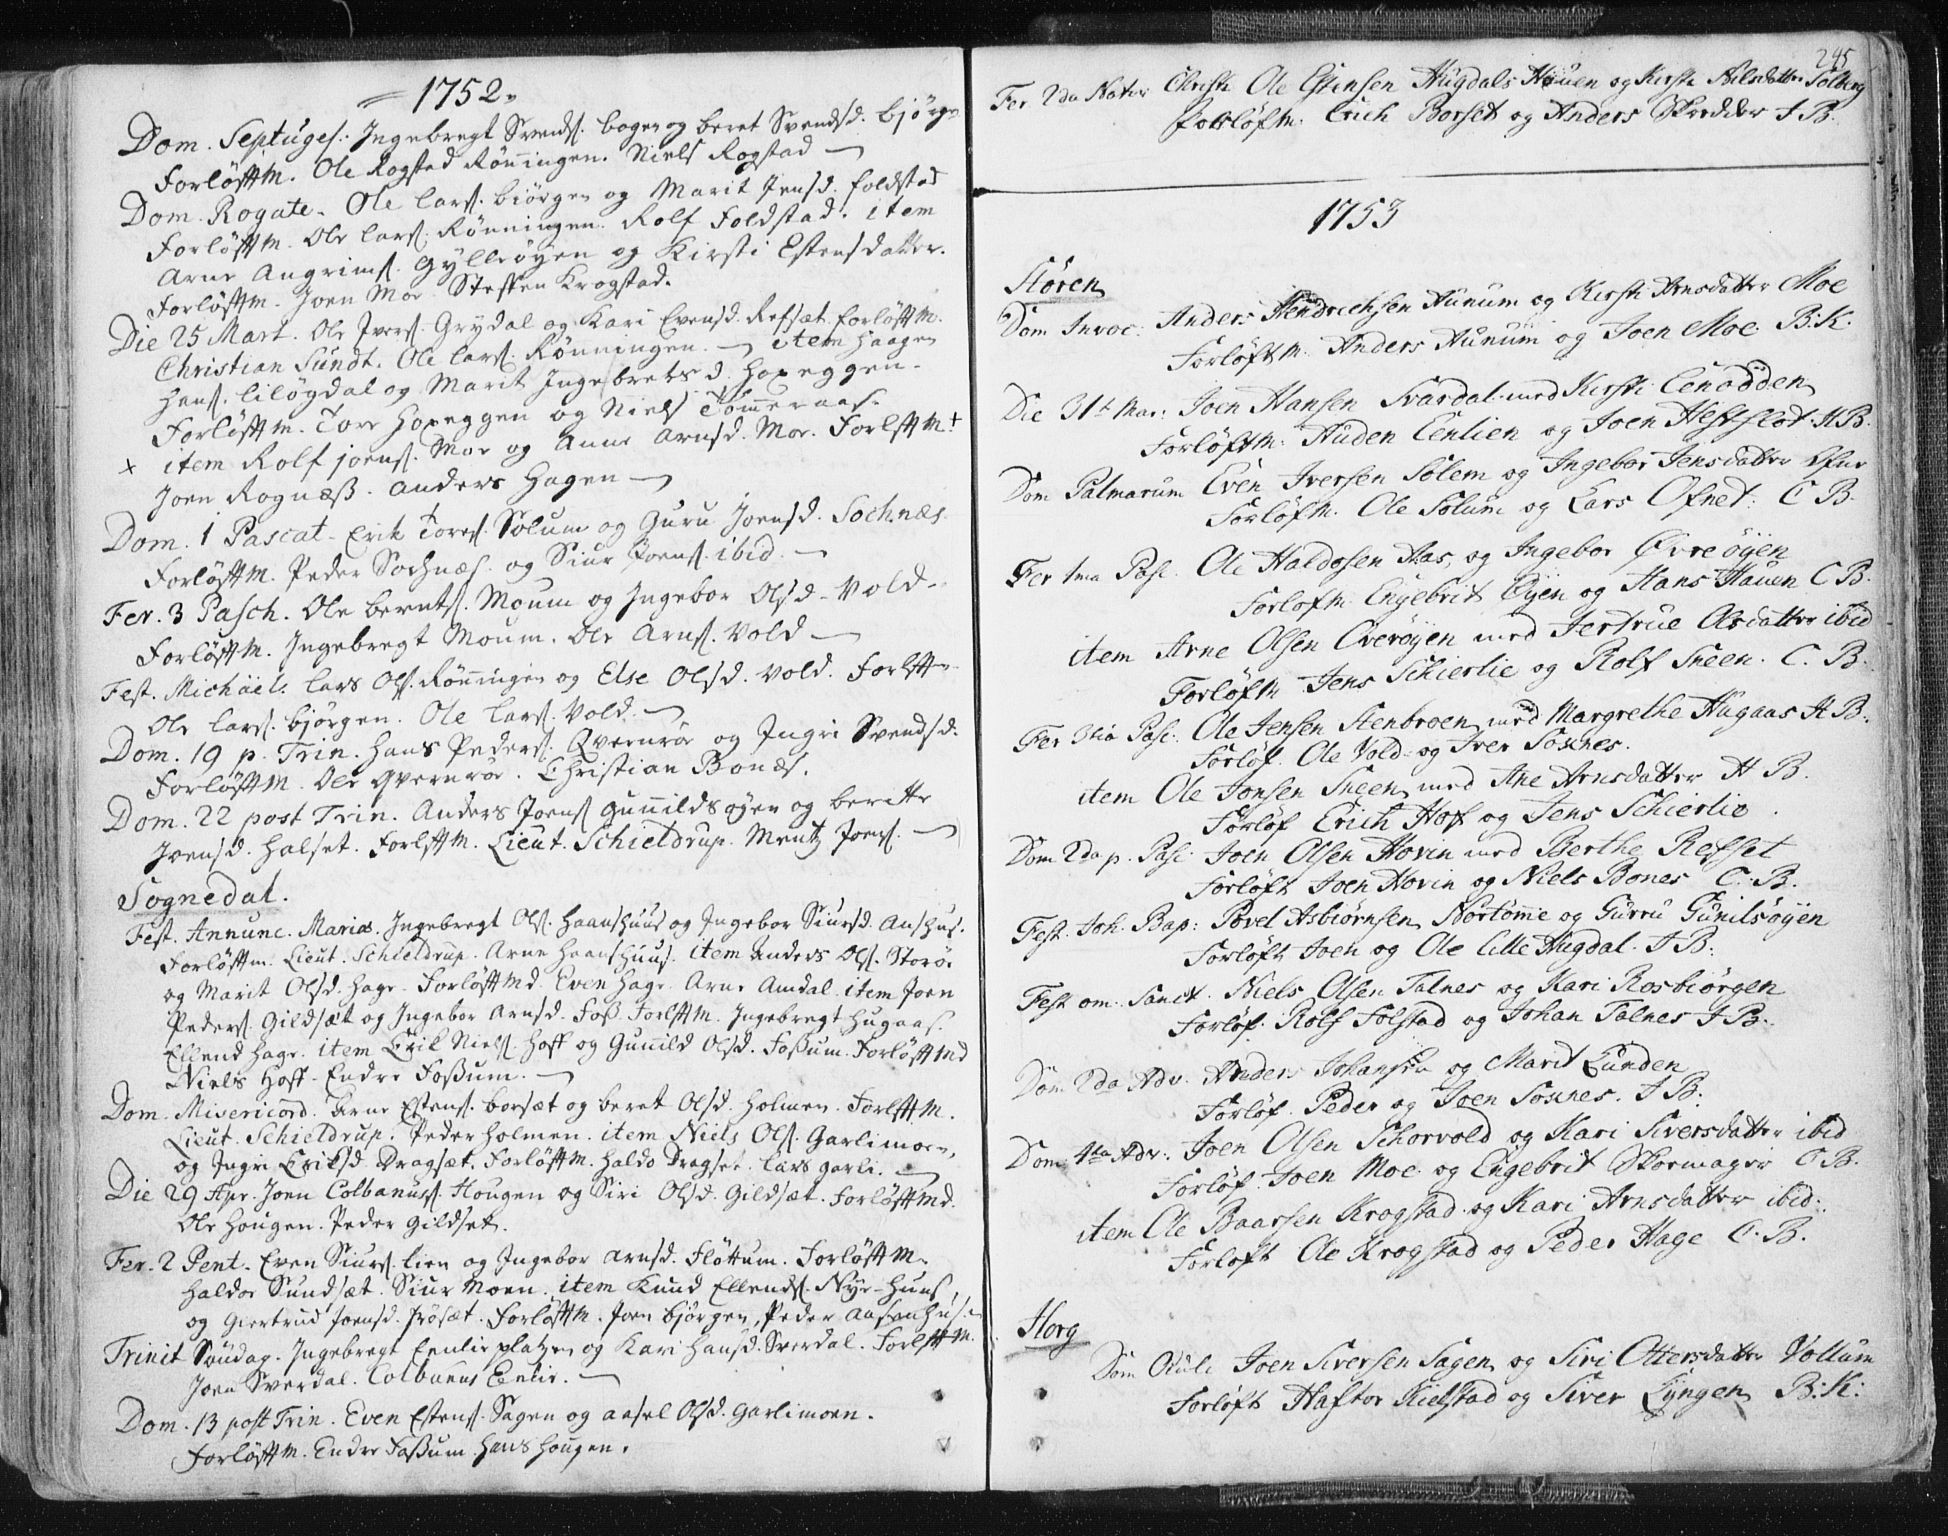 1752.
Dom. Septuges. Ingebregt Svends. bogen og beret Svendsd. bjørgen
Forløftm. Ole Rogstad Rönningen. Niels Rogstad
Dom. Rogate. Ole Lars. biörgen og Marit Jensd. foldstad
Forløftm. Ole Lars. Rönningen. Rolf Foldstad. item
Arne Angrims. Gylleöyen og Kirsti Estensdatter.
Forløftm. Joen Moe. Steffen Krogstad.
Die 25 Mart. Ole Ivers. Grydal og Kari Evensd. Refsæt. forløftm.
Christian Sundt. Ole Lars. Rönningen. item Haagen
Hans. lilögdal og Marit Ingebretsd. Hoxeggen.
Forløftm. Tore Hoxeggen og Niels Tömeraas.
x item Rolf joens. Moe og Anne Arnsd. Moe. Forlftm +
Joen Rognæss. Anders Hagen
Dom. 1 Pascat. Erik Tores. Solum og Guru Joensd. Sochnæs.
Forløftm. Peder Sochnæs. og Siur Joens. ibid.
Fer. 3 Pasch. Ole bernts. Moum og Ingebor Olsd. Vold.
Forløftm. Ingebregt Moum. Ole Arns. Vold
Fest. Michäel. Lars Ols. Rönningen og Else Olsd. Vold. Forlft
Ole Lars. bjørgen. Ole Lars. Vold.
Dom. 19 p. Trin. Hans Peders. Qvernröe og Ingri Svendsd.
Forløftm. Ole Qvernröe. Christian Bonæs.
Dom. 22 post Trin. Anders Joens. gunildsøyen og beritte
Joensd. Halset. Forlftm. Lieut. Schieldrup. Mentz Joens.
Sognedal.
Fest. Annunc. Mariæ. Ingebregt Ols. Haanshuus og Ingebor Siursd. Aashus.
Forløftm. Lieut. Schieldrup. Arne Haanshuus. item Anders Ols. Storöe
og Marit Olsd. Hage. Forløftmd. Even Hage. Arne Amdal. item Joen
Peders. Gildsæt og Ingebor Arnsd. Foss. Forlftm. Ingebregt Hugaas.
Ellend Hage. item Erik Niels. Hoff og Gunild Olsd. Fossum. Forløftmd
Niels Hoff. Endre Fossum.
Dom. Misericord. Arne Estens. borsæt og beret Olsd. Holmen. Forlftm.
Lieut. Schieldrup. Peder Holmen. item Niels Ols. Garlimoen,
og Ingri Eriksd. Dragsæt. Forløftm. Haldo Dragset. Lars garli.
Die 29 Apr. Joen Colbanus. Hougen og Siri Olsd. Gildsæt. Forløftmd.
Ole Hougen. Peder Gildset.
Fer. 2 Pent. Even Siurs. Lien og Ingebor Arnsd. Flöttum. Forløftm.
Haldoe Sundsæt. Siur Moen. item Knud Ellends. Nye-Huus,
og Giertrud Joensd. Frösæt. Forløftm. Joen bjørgen, Peder
Trinit Söndag. Ingebregt Eenlie platzen og Kari Hansd. Sverdal. Forlftm.
Joen Sverdal. Colbanus Eenlie.
Dom. 13 post Trin. Even Estens. Sagen og Aasel Olsd. Garlimoen.
Forløftm. Endre Fossum. Hans Hougen.
245
Fer 2da Nativ Christi Ole Estensen Hugdals Houen og Kirsti Nilsdatter Solberg
forløftm. Erich Borset og Anders Skredder J B.
1753
Støren
Dom Invoc. Anders Hendrechsen Aunum og Kirsti Arnsdatter Moe
Forløftm. Anders Aunum og Joen Moe. B:K.
Die 31t Mar: Joen Hansen Svardal med Kirsti Eenodden
Forløftm: Auden Eenlien og Joen Hestflot. H B.
Dom Palmarum Even Iversen Solem og Ingebor Jensdatter Ofne
Forløfm. Ole Solum og Lars Ofnet. C B.
Fer 1ma Pasc. Ole Haldosen Aas, og Ingebor Øvreöyen
Forlofm Engebrit Öyen og Hans Hauen C B.
item Arne Olsen Overöyen med Jertrue Olsdatter ibid
Forløfm Jens Schierlie og Rolf Sneen. C. B.
Fer 3tia Pasc. Ole Jensen Stenbroen med Margrethe Hugaas H B.
Forløf. Ole Vold og Iver Soxnes.
item Ole Jonsen Sneen med Ane Arnsdatter H B.
Forløf Erich Hof og Jens Schierlie.
Dom 2da p. Pasc. Joen Olsen Hovin med Berthe Refset
Forløft Joen Hovin og Niels Bones C. B.
Fest. Joh. Bap: Povel Asbiörnsen Nortömme og Gurru Gunilsöyen
Forløft Joen og Ole Lille Hugdal. J B:
Fest om. Sanct. Niels Olsen Talnes og Kari Rosbiörgen
Forløf. Rolf Folstad og Johan Talnes J B.
Dom 2da Adv. Anders Johansen og Marit Lunden
Forløf. Peder og Joen Soxnes. J B.
Dom 4ta Adv. Joen Olsen Schorvold og Kari Siversdatter ibid
Forløf. Joen Moe og Engebrit Skomager C B.
item Ole Baarsen Krogstad og Kari Arnsdatter ibid.
Forløft Ole Krogstad og Peder Hage C. B.
Horg
Dom Oculi Joen Siversen Sagen og Siri Ottersdatter Vollum
Forløft Haftor Kielstad og Siver Lyngen B:K: